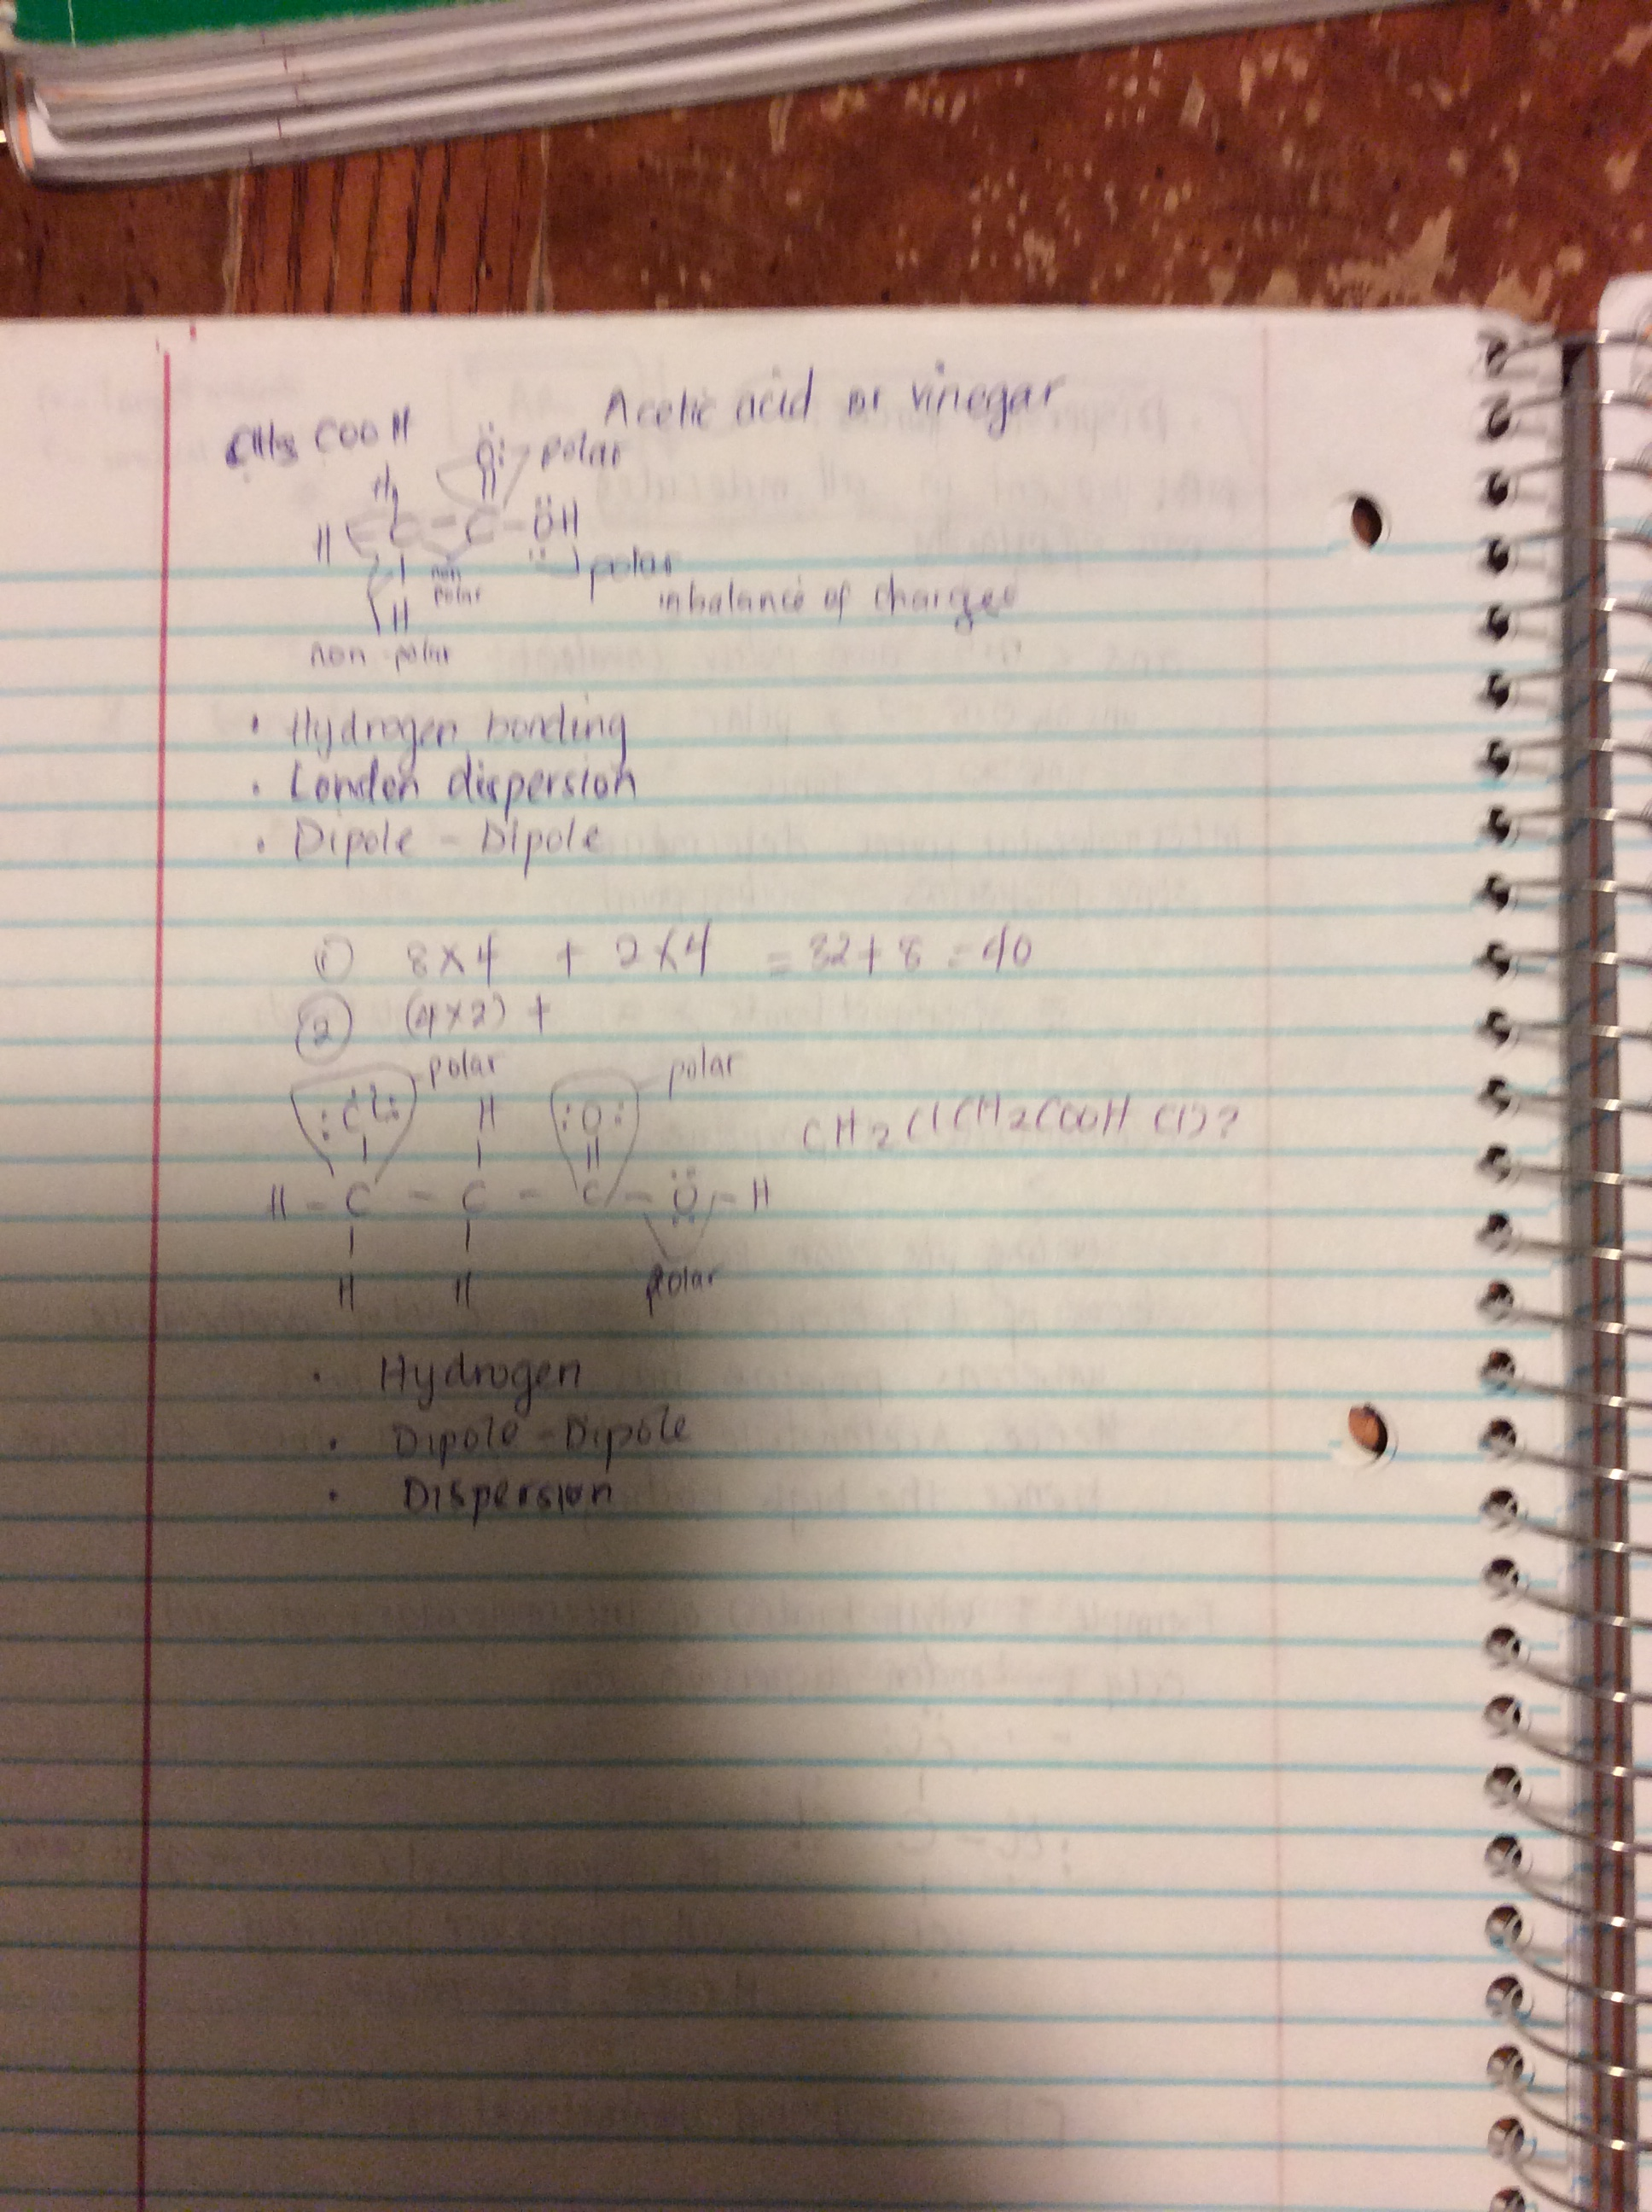 Acetic acid or vinegar
CH3 COOH
:O: polar
H
H C - C - OH
non polar
polar
inbalance of charges
H
non-polar
• Hydrogen bonding
• London dispersion
• Dipole - Dipole
① 8×4 + 2×4 = 32+8 = 40
② (4×2) +
polar polar
:Cl: H :O:
CH2ClCH2COOH
H - C - C - C - O - H
H H polar
• Hydrogen
• Dipole-Dipole
• Dispersion